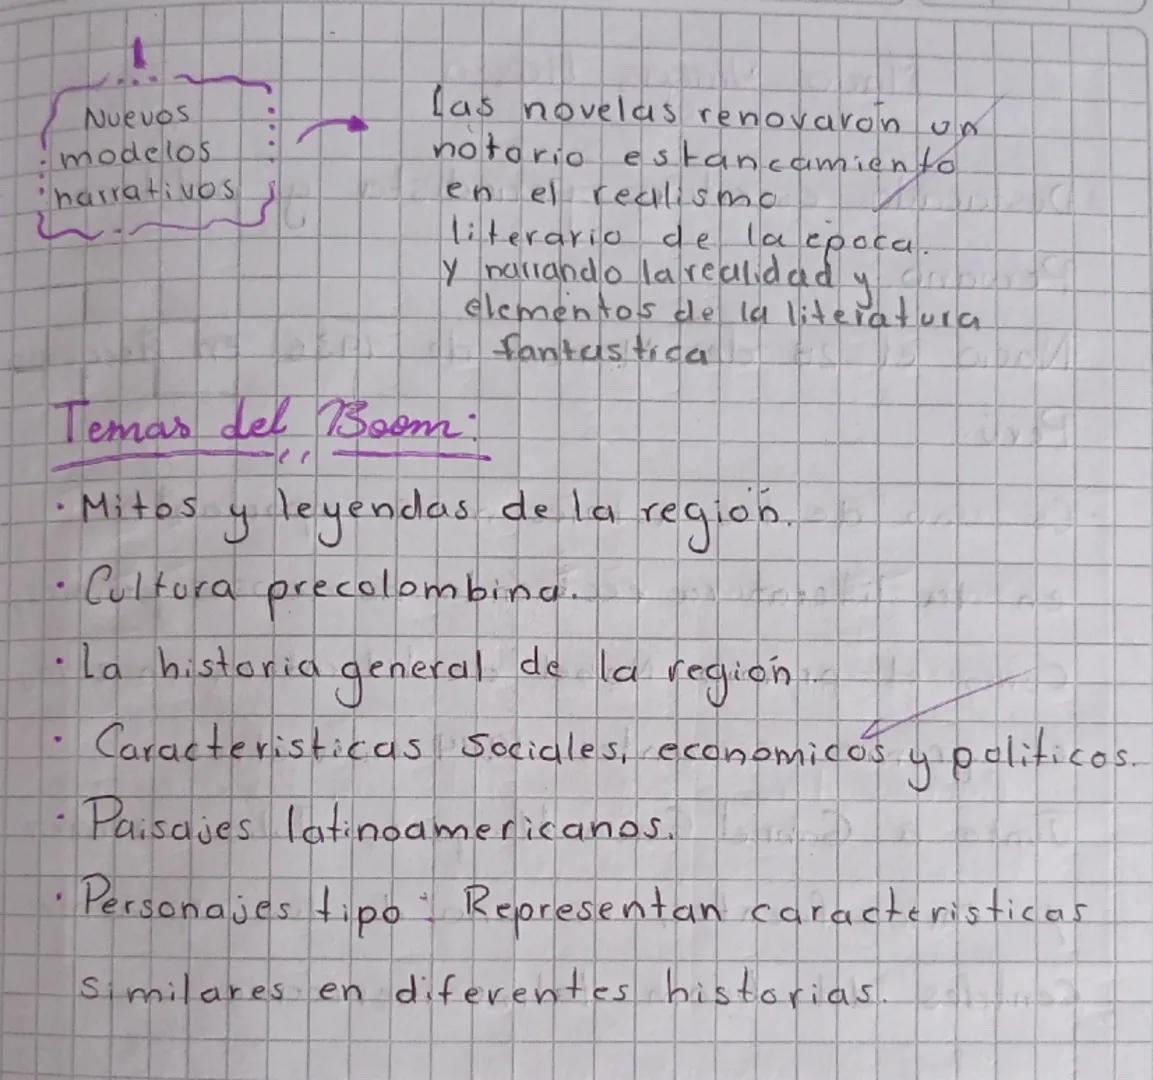 Nuevos
modelos
narrativos
Las novelas renovarón un
notorio estancamiento
en el realismo
literario de la epoca.
y narrando la realidad y
elementos de la literatura
fantastica
Temas del Boom:
· Mitos y leyendas de la región.
· Cultura precolombina.
· La historia general de la región.
· Caracteristicas sociales, economicos y politicos.
· Paisajes latinoamericanos.
· Personajes tipo: Representan caracteristicas
similares en diferentes historias.